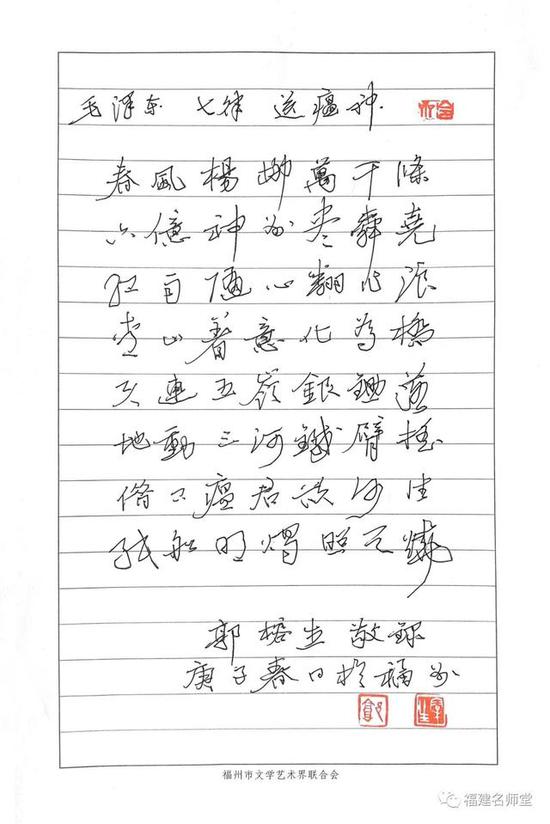 毛泽东 七律 送瘟神
春風楊柳萬千條
六億神州尽舜堯
红雨随心翻作浪
青山著意化为橋
天連五嶺銀鋤落
地動三河鐵臂摇
借问瘟君欲何往
纸船明燭照天燒
郭榕生敬録
庚子春日於福州
福州市文学艺术界联合会
福建名师堂